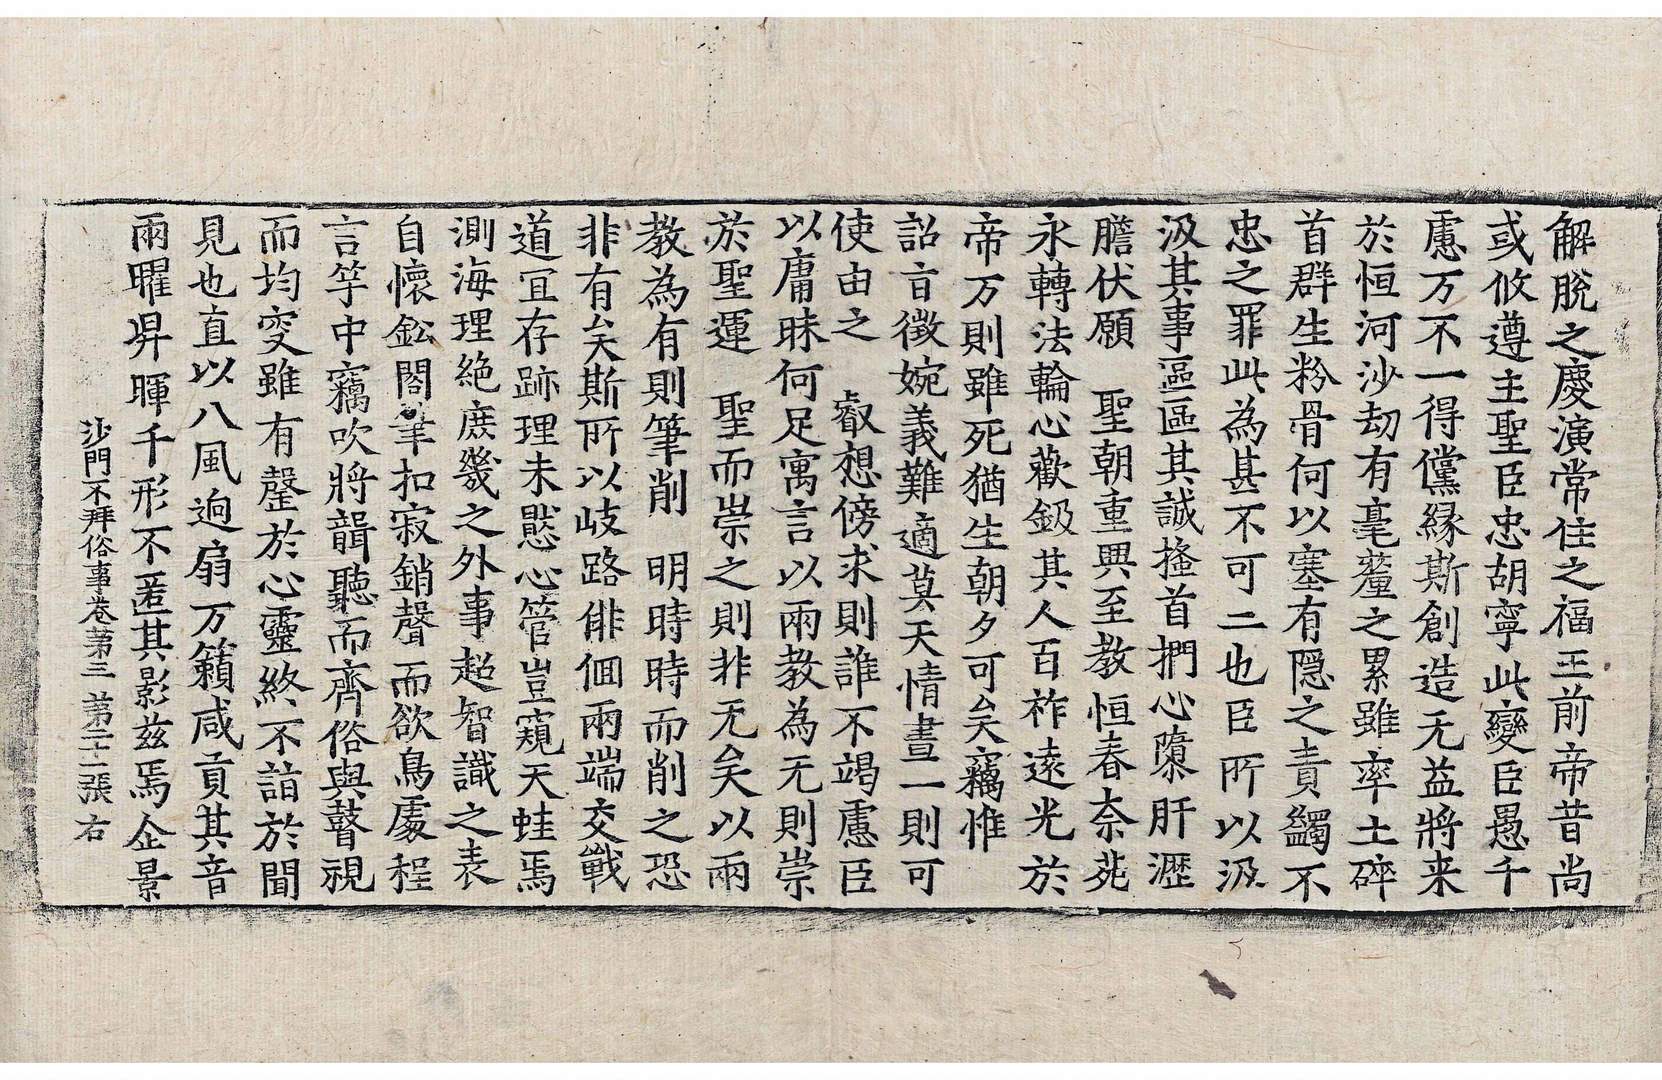 解脫之慶演常住之福王前帝昔尚
或攸遵主聖臣忠胡寧此變臣愚千
慮万不一得儻縁斯創造无益將来
於恒河沙劫有毫氂之累雖率土碎
首群生粉骨何以塞有隱之責蠲不
忠之罪此為甚不可二也臣所以汲
汲其事區區其誠搔首捫心隳肝瀝
膽伏願　聖朝重興至教恒春奈苑
永轉法輪心歡鈒其人百祚遠光於
帝万則雖死猶生朝夕可矣竊惟
詔旨徵婉義難適莫天情晝一則可
使由之　叡想傍求則誰不竭慮臣
以庸昧何足寓言以兩教為无則崇
於聖運　聖而崇之則非无矣以兩
教為有則筆削　明時時而削之恐
非有矣斯所以岐路俳佪兩端交戰
道冝存跡理未愍心管豈窺天蛙焉
測海理絶庶幾之外事超智識之表
自懷鈆閣筆扣寂銷聲而欲鳥處程
言竽中竊吹將聾聽而齊俗與瞽視
而均叜雖有罄於心靈終不詣於聞
見也直以八風逈扇万籟咸貢其音
兩曜昇暉千形不匿其影茲焉企景
沙門不拜俗事卷第三　第二十二張　右